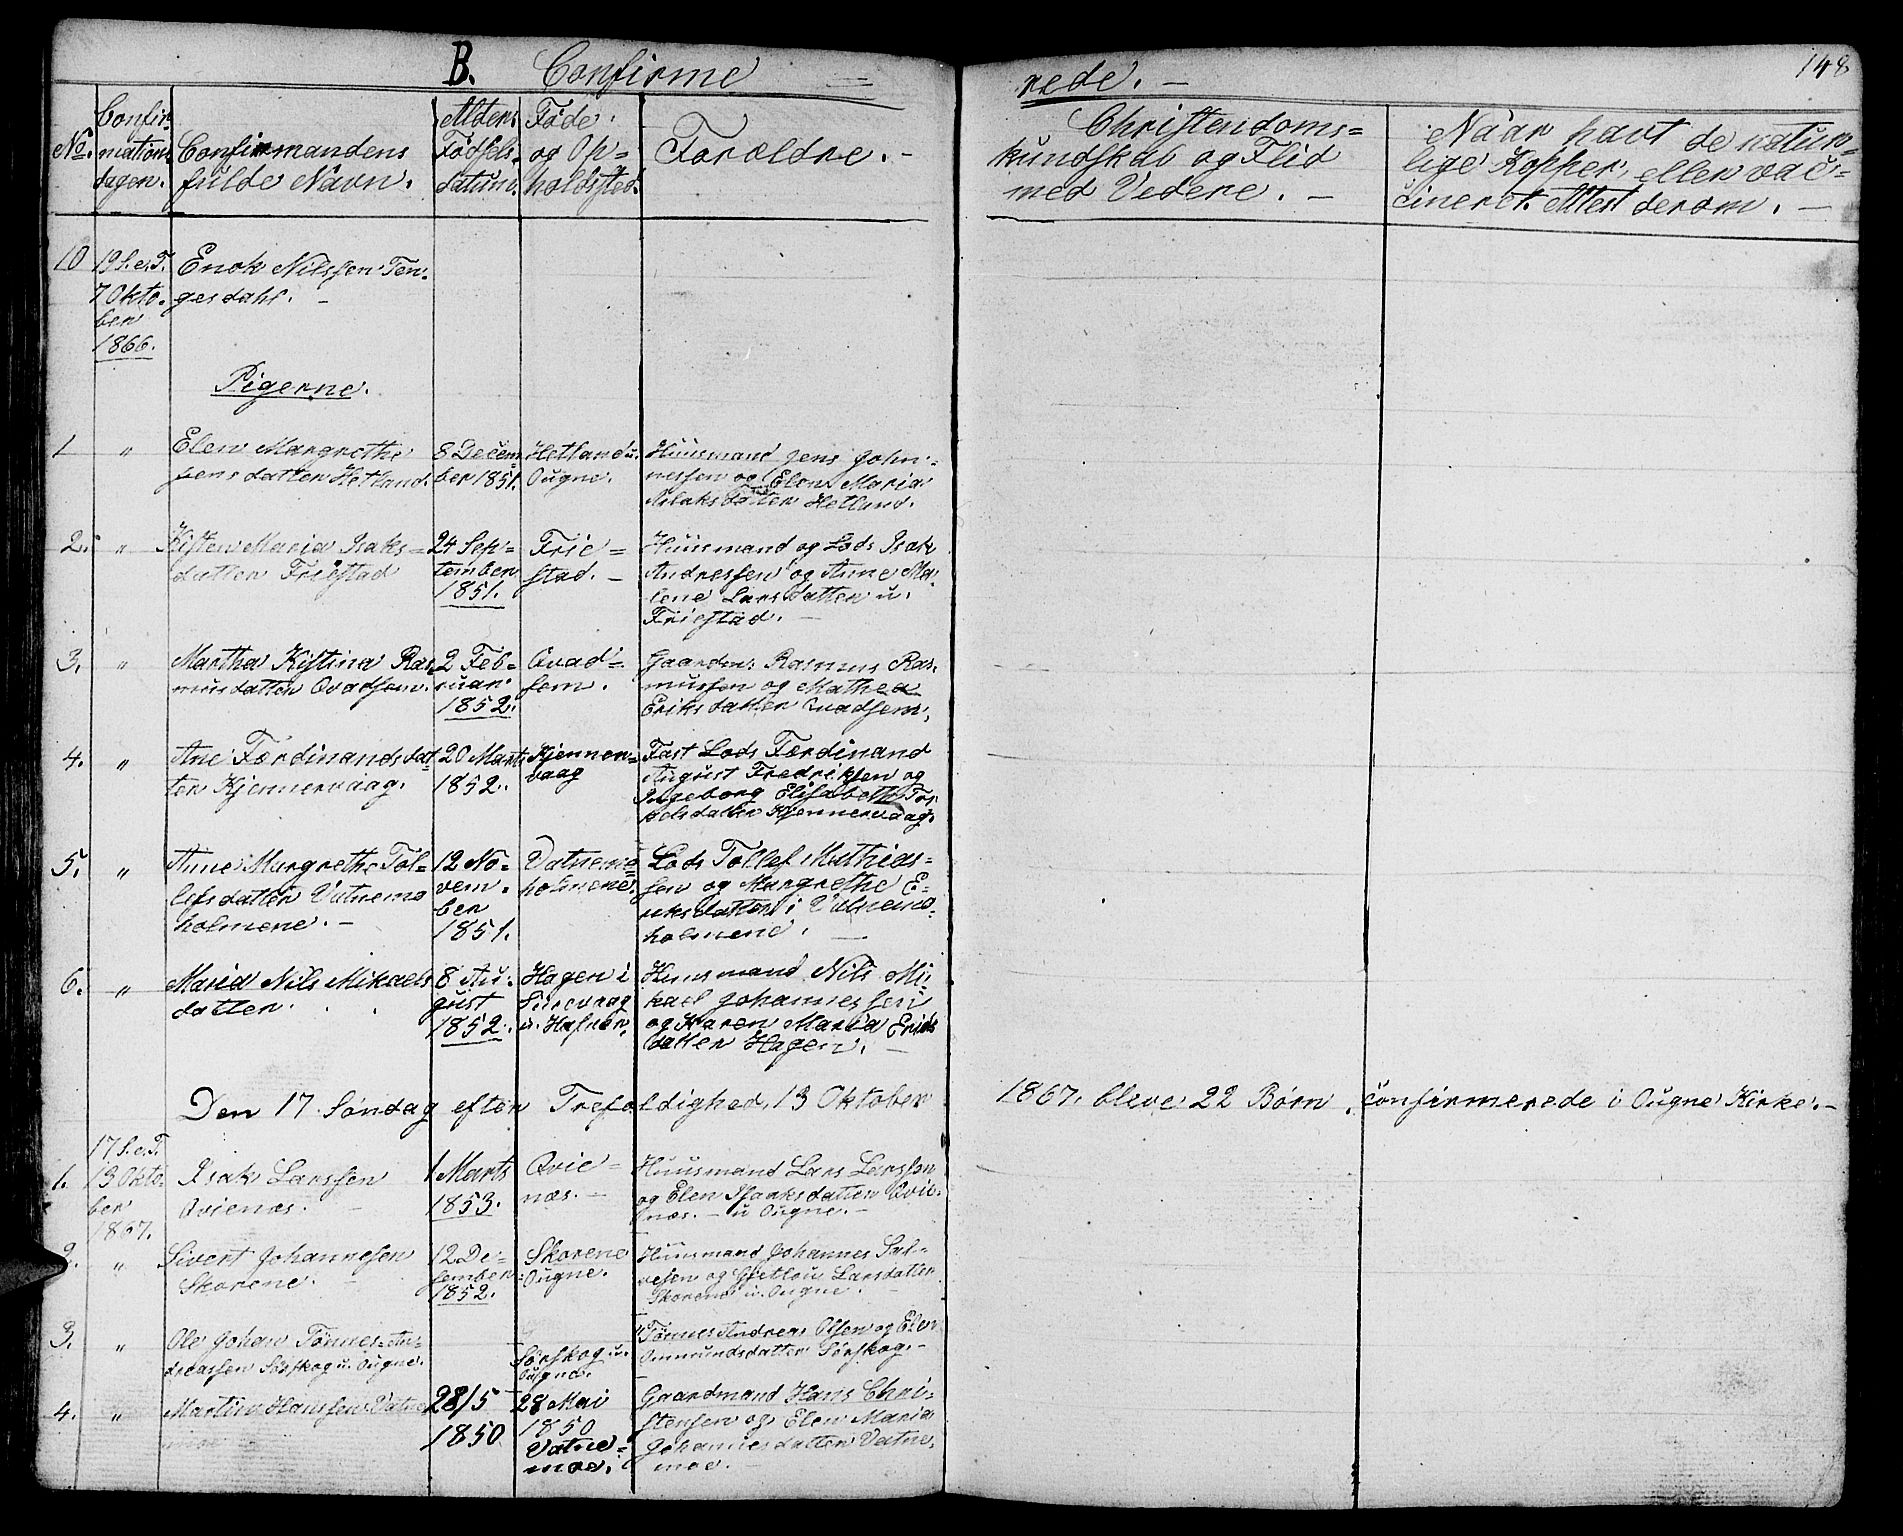 B. Confirme
rede. —
148
No.
Confir-
mations
dagen.
Confirmandens
fulde Navn.
Alder.
Fødsels-
datum.
Føde-
og Op=
holdsted.
Forældre. —
Christendoms=
kundskab og Flid
med Videre. —
Naar havt de natur-
lige Kopper, eller vac=
cineret. Attest derom. —
10
19 S.e.T.
7 Okto-
ber
1866.
Enok Nilssen Ten-
gesdahl. —
Pigerne.
1
"
Elen Margrethe
Jensdatter Hetland.
8 Decem
ber 1851.
Hetland u.
Ougne.
Huusmand Jens John-
nessen og Elen Maria
Aslaksdatter Hetland.
2.
"
Kisten Maria Isaks=
datter Friestad
24 Sep=
tember
1851.
Frie=
stad. —
Huusmand og Lods Isak
Andressen og Anne Ma-
lene Larsdatter u.
Friestad. —
3.
"
Martha Kistina Ras-
musdatter Qvadsem.
2 Feb=
ruar.
1852.
Qvad=
sem.
Gaardm. Rasmus Ras-
mussen og Mathea
Eriksdatter Qvadsem.
4.
"
Ane Færdinandsdat-
ter Kjennervaag.
20 Marts
1852.
Kjenner=
vaag
Fast Lods Færdinand
August Fredriksen og
Ingeborg Elisabeth Tor
kelsdatter Kjennervaag.
5.
"
Anne Margrethe Tol=
lefsdatter Vatnemo
holmene. —
12 No=
vem-
ber
1851.
Vatnemo=
holmene.
Lods Tollef Mathias=
sen og Margrethe E=
riksdatter i Vatnemo-
holmene. —
6.
"
Maria Nils Mikaels
datter.
8 Au-
gust
1852.
Hagen i
Sirevaag
u. Hafven.
Huusmand Nils Mi-
kael Johannessen
og Karen Maria Eriks
datter Hagen. —
Den 17 Søndag efter Trefoldighed, 13 Oktober 1867. bleve 22 Børn confirmerede i Ougne Kirke. —
1.
17 S.e.T.
13 Okto-
ber
1867.
Isak Larssen
Qvienæs. —
1 Marts
1853.
Qvie=
næs. —
Huusmand Lars Larssen
og Elen Isaaksdatter Qvie-
næs. — u Ougne. —
2.
"
Sivert Johannesen
Skorene. —
12 De=
sember
1852.
Skorene
Ougne.
Huusmand Johannes Sal=
vesen og Larsdatter
Skorene u. Ougne. —
3.
"
Ole Johan Tønnes An-
dreassen Sørskog u. Ougne.
Sørskog u.
Ougne.
Tønnes Andreas Olsen og Elen
Ommundsdatter Sørskog. —
4.
"
Martin Hanssen Vatne
moe
28/5
1850
28 Mai
1850
Vatne=
moe.
Gaardmand Hans Chri=
stensen og Elen Maria
Johannesdatter Vatne-
moe. —